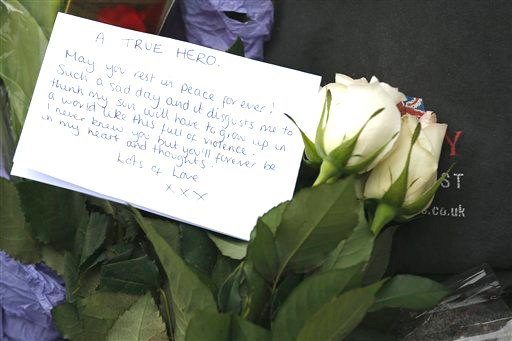 A TRUE HERO.
May you rest in peace forever!
Such a sad day and it disgusts me to
think my son will have to grow up in
a world like this full of violence.
I never knew you but you'll forever be
in my heart and thoughts!
Lots of Love
x x x
Y
ST
.co.uk